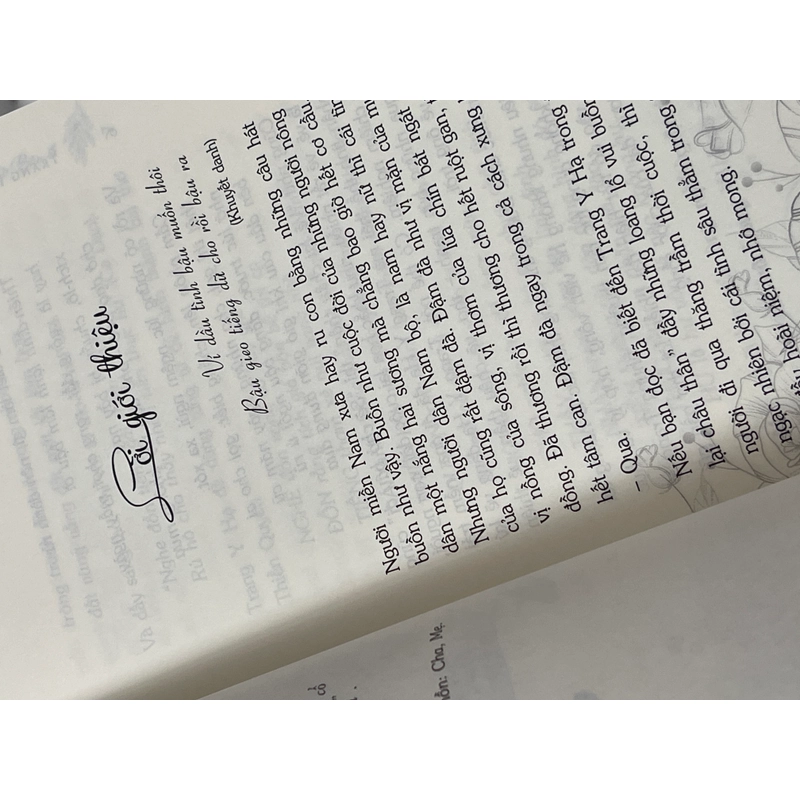 Lời giới thiệu
Ví dầu tình bậu muốn thôi
Bậu gieo tiếng dữ cho rồi bậu ra
(Khuyết danh)
Người miền Nam xưa hay ru con bằng những câu hát
buồn như vậy. Buồn như cuộc đời của những người nông
dân một nắng hai sương mà chẳng bao giờ hết cơ cầu.
Nhưng người dân Nam bộ, là nam hay nữ thì cái tìn
của họ cũng rất đậm đà. Đậm đà như vị mặn của mu
vị nồng của sông, vị thơm của lúa chín bát ngát
đồng. Đã thương rồi thì thương cho hết ruột gan, t
hết tâm can. Đậm đà ngay trong cả cách xưng
– Qua.
Nếu bạn đọc đã biết đến Trang Y Hạ trong
lại châu thân” đầy những loang lổ vui buồn
người đi qua thăng trầm thời cuộc, thì
ngạc nhiên bởi cái tình sâu thẳm trong
hoài niệm, nhớ mong,
cổ
ôn: Cha, Mẹ